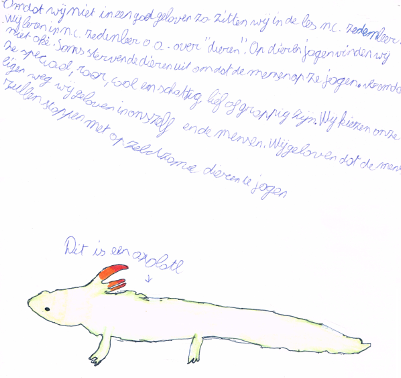 Omdat wij niet in een god geloven zo zitten wij in de les n.c. zedenleer.
Wij leren in n.c. zedenleer o.a. over "dieren". Op dieren jagen vinden wij
niet oké. Soms sterven de dieren uit omdat de mensen op ze jagen.
ze speciaal, raar, cool en schattig, lief of grappig zijn. Wij kiezen onze
eigen weg wij geloven in onszelf en de mensen. Wij geloven dat de
zullen stoppen met op zeldzame dieren te jagen
Dit is een axolotl